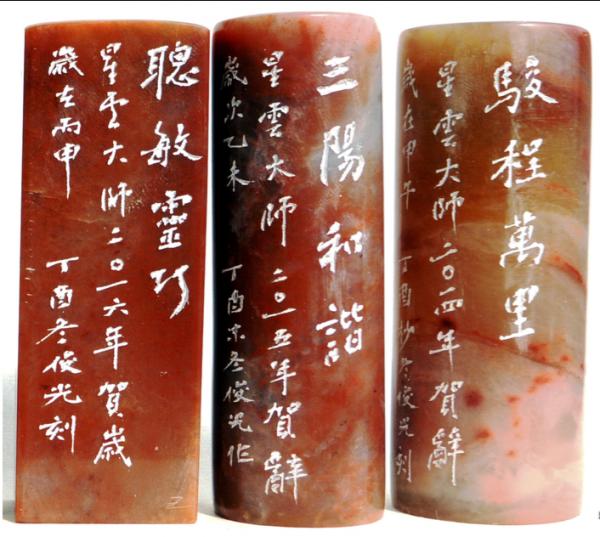 駿程萬里
星雲大師二〇一四年賀辭
歲在甲午 丁酉抄冬俊光刻
三陽和諧
星雲大師 二〇一五年賀辭
歲次乙未 丁酉冬俊光作
聰敏靈巧
星雲大師二〇一六年賀歲
歲在丙申 丁酉冬俊光刻